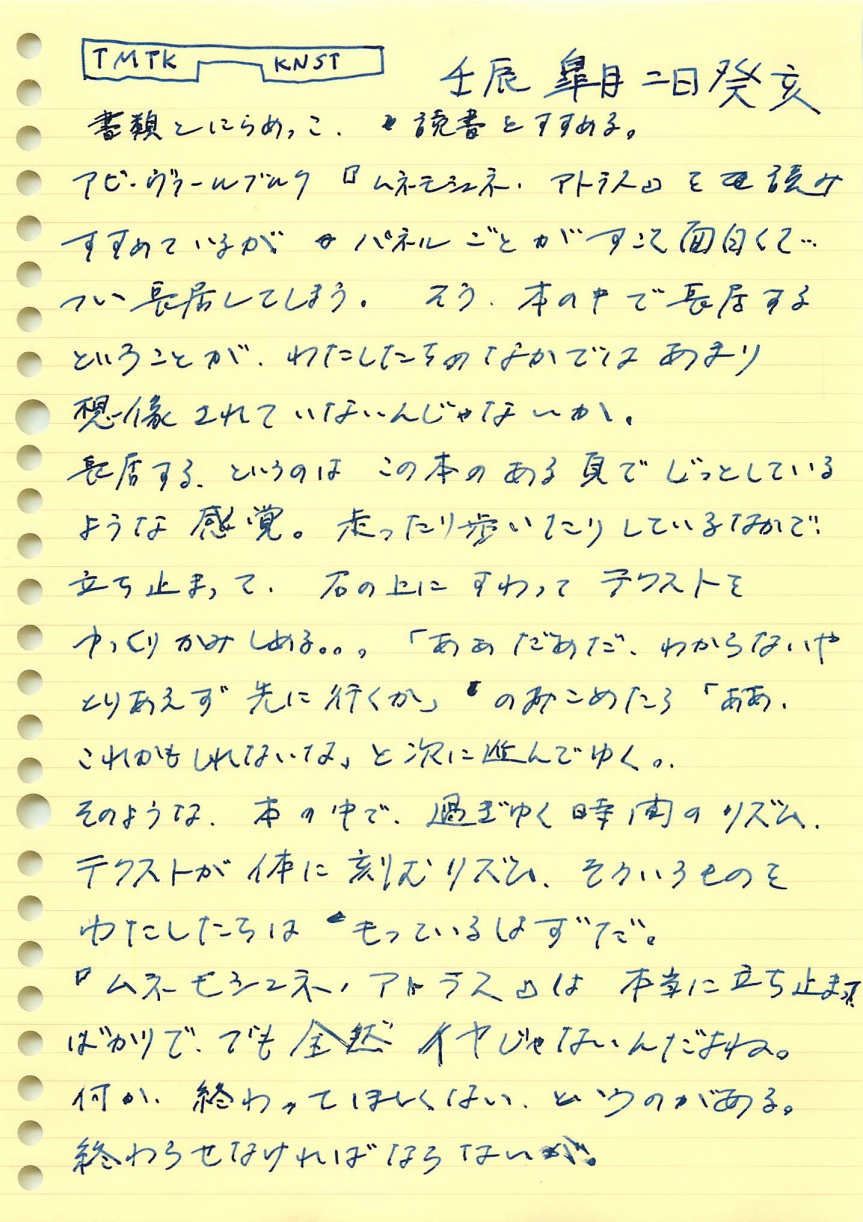 TMTK KNST
壬辰 皐月 二日 癸亥
書類とにらめっこ、読書をすすめる。
アビ・ヴァールブルク『ムネモシュネ・アトラス』を読み
すすめているが パネルごとがすごく面白くて…
つい長居してしまう。 そう、本の中で長居する
ということが、わたしたちのなかではあまり
想像されていないんじゃないか。
長居する、というのは この本のある頁でじっとしている
ような感覚。走ったり歩いたりしているなかで、
立ち止まって、石の上にすわって テクストを
ゆっくりかみしめる。。。「ああだめだ、わからないや
とりあえず先に行くか」のみこめたら「ああ、
これかもしれないな」と次に進んでゆく。。
そのような、本の中で、過ぎゆく時間のリズム、
テクストが体に刻むリズム、そういうものを
わたしたちは もっているはずだ。
『ムネモシュネ・アトラス』は 本当に立ち止まって
ばかりで、でも全然イヤじゃないんだよね。
何か、終わってほしくない、というのがある。
終わらせなければならないが。